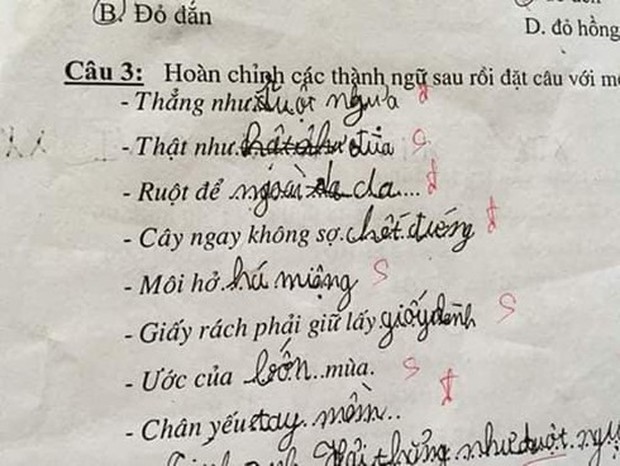 B. Đỏ đắn
D. đỏ hồng
Câu 3: Hoàn chỉnh các thành ngữ sau rồi đặt câu với
- Thẳng như ruột ngựa đ
- Thật như đùa s
- Ruột để ngoài da... đ
- Cây ngay không sợ chết đứng đ
- Môi hở há miệng s
- Giấy rách phải giữ lấy giấy lành s
- Ước của bốn..mùa. s
- Chân yếu tay mềm.. đ
thẳng như ruột